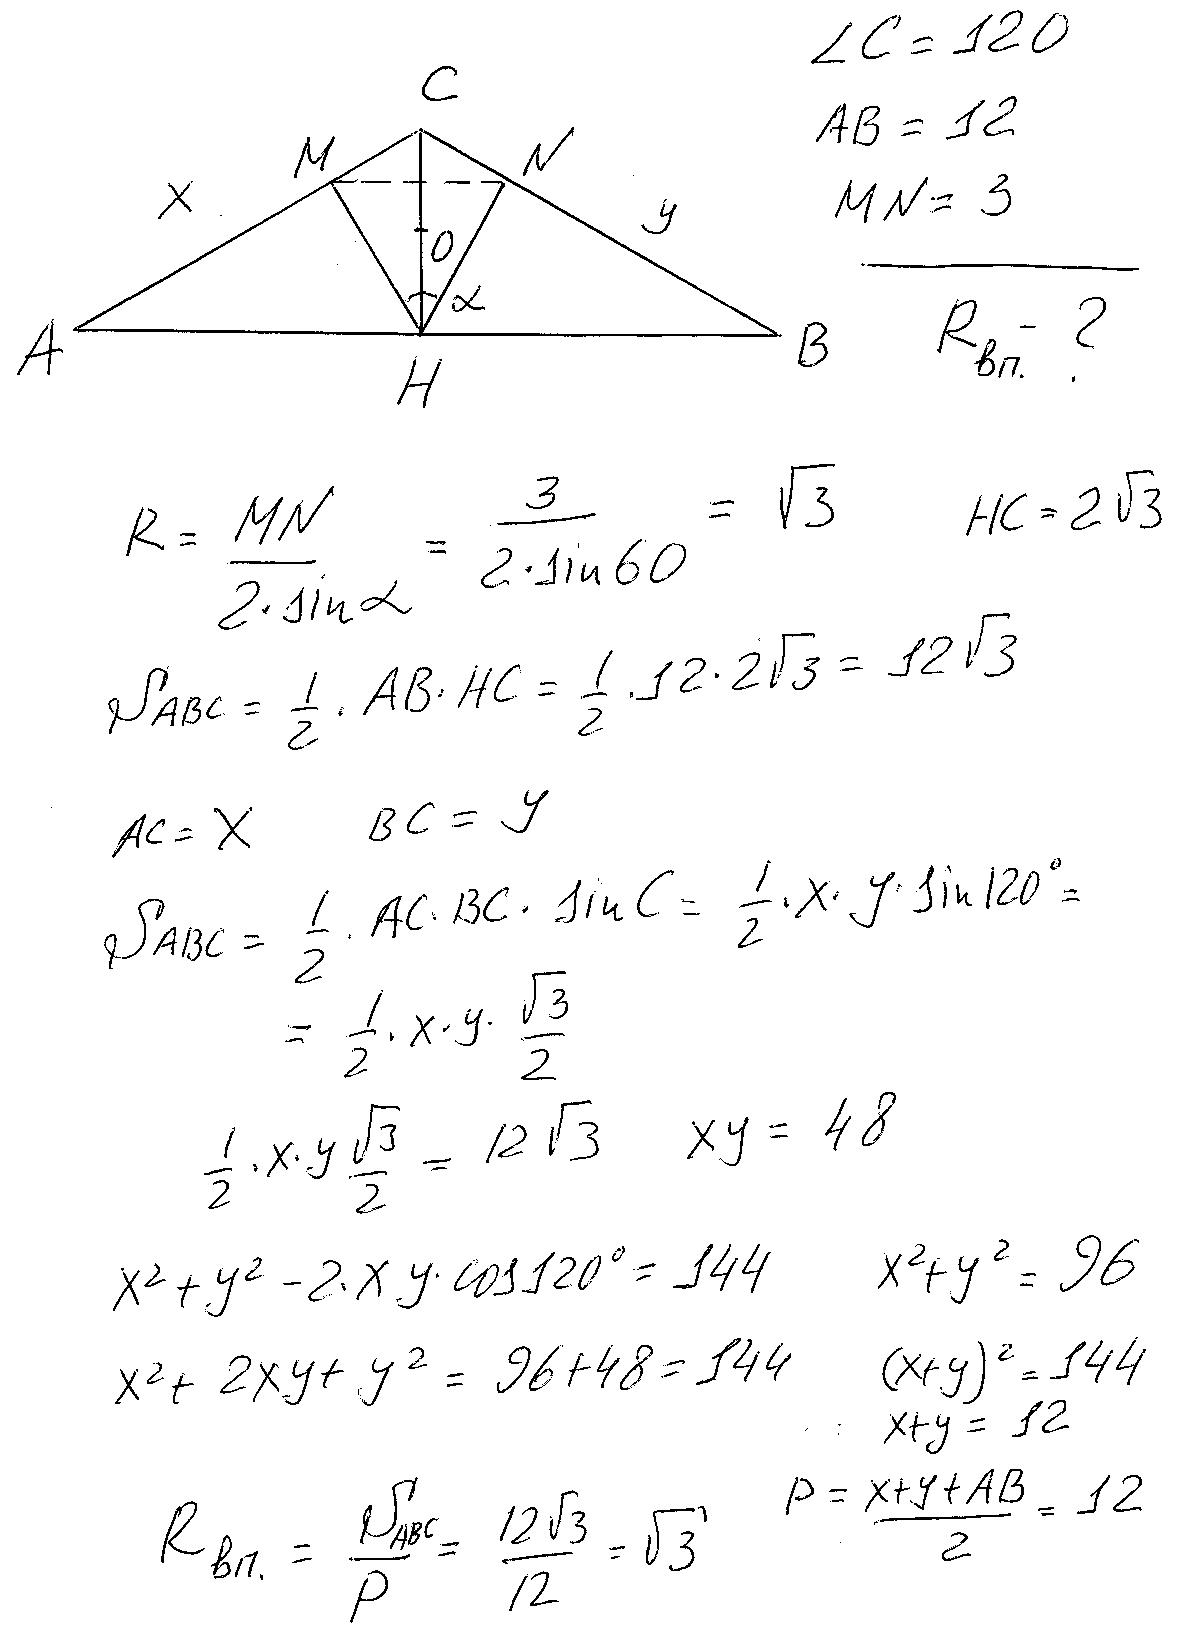 C
M
N
x
y
O
α
A
H
B
∠C = 120
AB = 12
MN = 3
Rвп. - ?
R = MN/(2·sinα) = 3/(2·sin60) = √3 HC = 2√3
S_ABC = 1/2 · AB·HC = 1/2 ·12·2√3 = 12√3
AC = x BC = y
S_ABC = 1/2 · AC·BC· sinC = 1/2 ·x·y·sin120° =
= 1/2 ·x·y· √3/2
1/2 ·x·y √3/2 = 12√3 xy = 48
x²+y² -2·xy·cos120° = 144 x²+y² = 96
x²+ 2xy+ y² = 96+48 = 144 (x+y)² = 144
x+y = 12
p = (x+y+AB)/2 = 12
Rвп. = S_ABC/p = 12√3/12 = √3